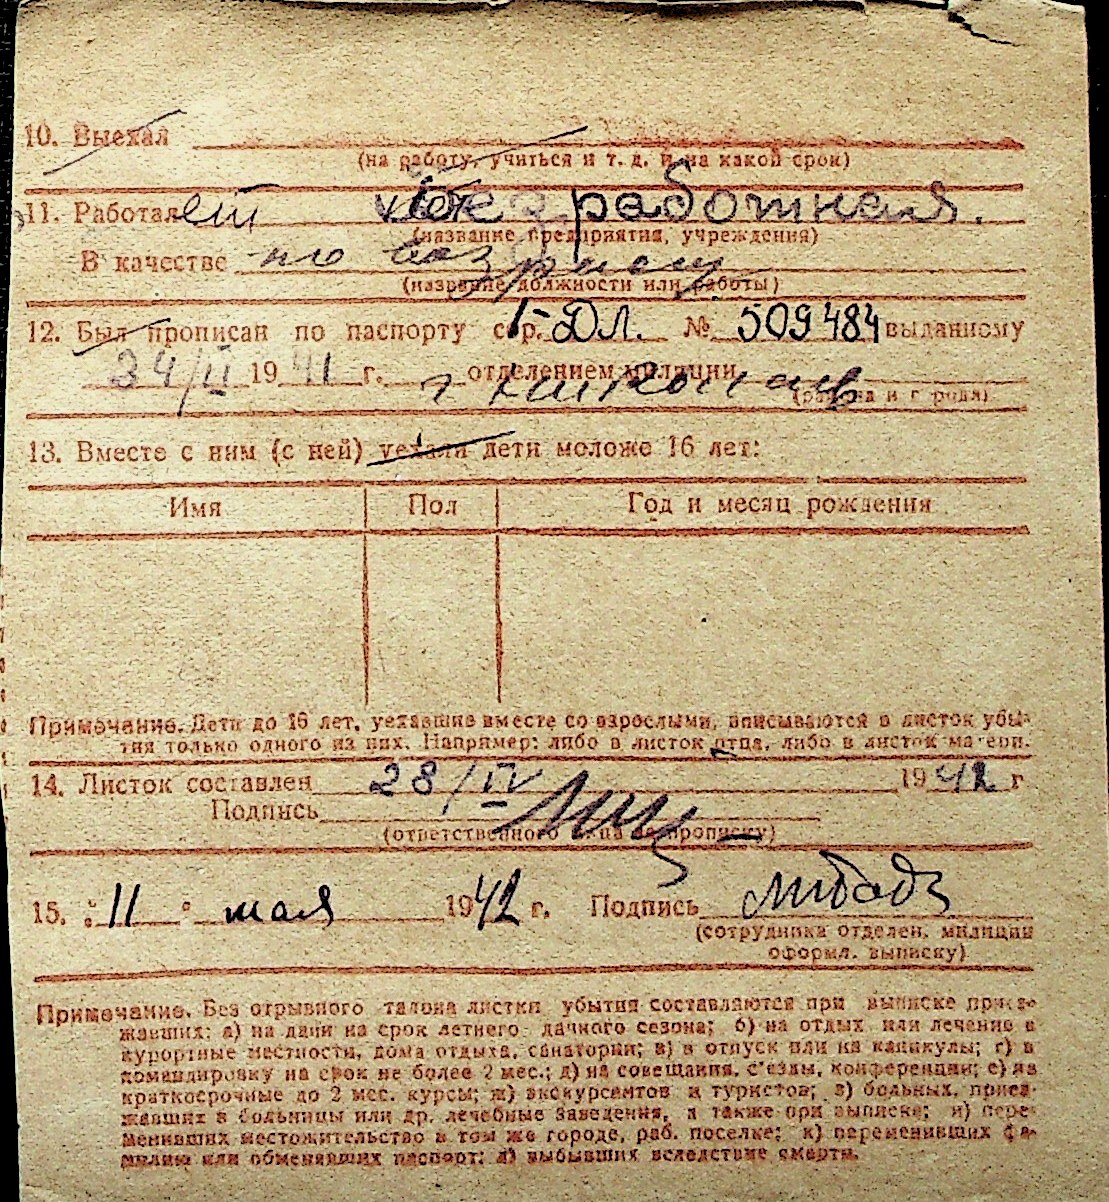 10. Выехал
(на работу, учиться и т. д. и на какой срок)
11. Работает безработная.
(название предприятия, учреждения)
В качестве по возрасту
(название должности или работы)
12. Был прописан по паспорту сер. I-ДЛ. № 509484 выданному
24/II 1941 г. отделением милиции г Николаев
(района и города)
13. Вместе с ним (с ней) уехали дети моложе 16 лет:
Имя Пол Год и месяц рождения
Примечание. Дети до 16 лет, уехавшие вместе со взрослыми, вписываются в листок убы-
тия только одного из них. Например: либо в листок отца, либо в листок матери.
14. Листок составлен 28/IV 1942 г
Подпись
(ответственного лица за прописку)
15. "11" мая 1942 г. Подпись
(сотрудника отделен. милиции
оформл. выписку)
Примечание. Без отрывного талона листки убытия составляются при выписке приез-
жавших: а) на дачи на срок летнего дачного сезона; б) на отдых или лечение в
курортные местности, дома отдыха, санатории; в) в отпуск или на каникулы; г) в
командировку на срок не более 2 мес.; д) на совещания, с'езды, конференции; е) на
краткосрочные до 2 мес. курсы; ж) экскурсантов и туристов; з) больных, приез-
жавших в больницы или др. лечебные заведения, а также при выписке; и) пере-
менивших местожительство в том же городе, раб. поселке; к) переменивших фа-
милию или обменявших паспорт; л) выбывших вследствие смерти.